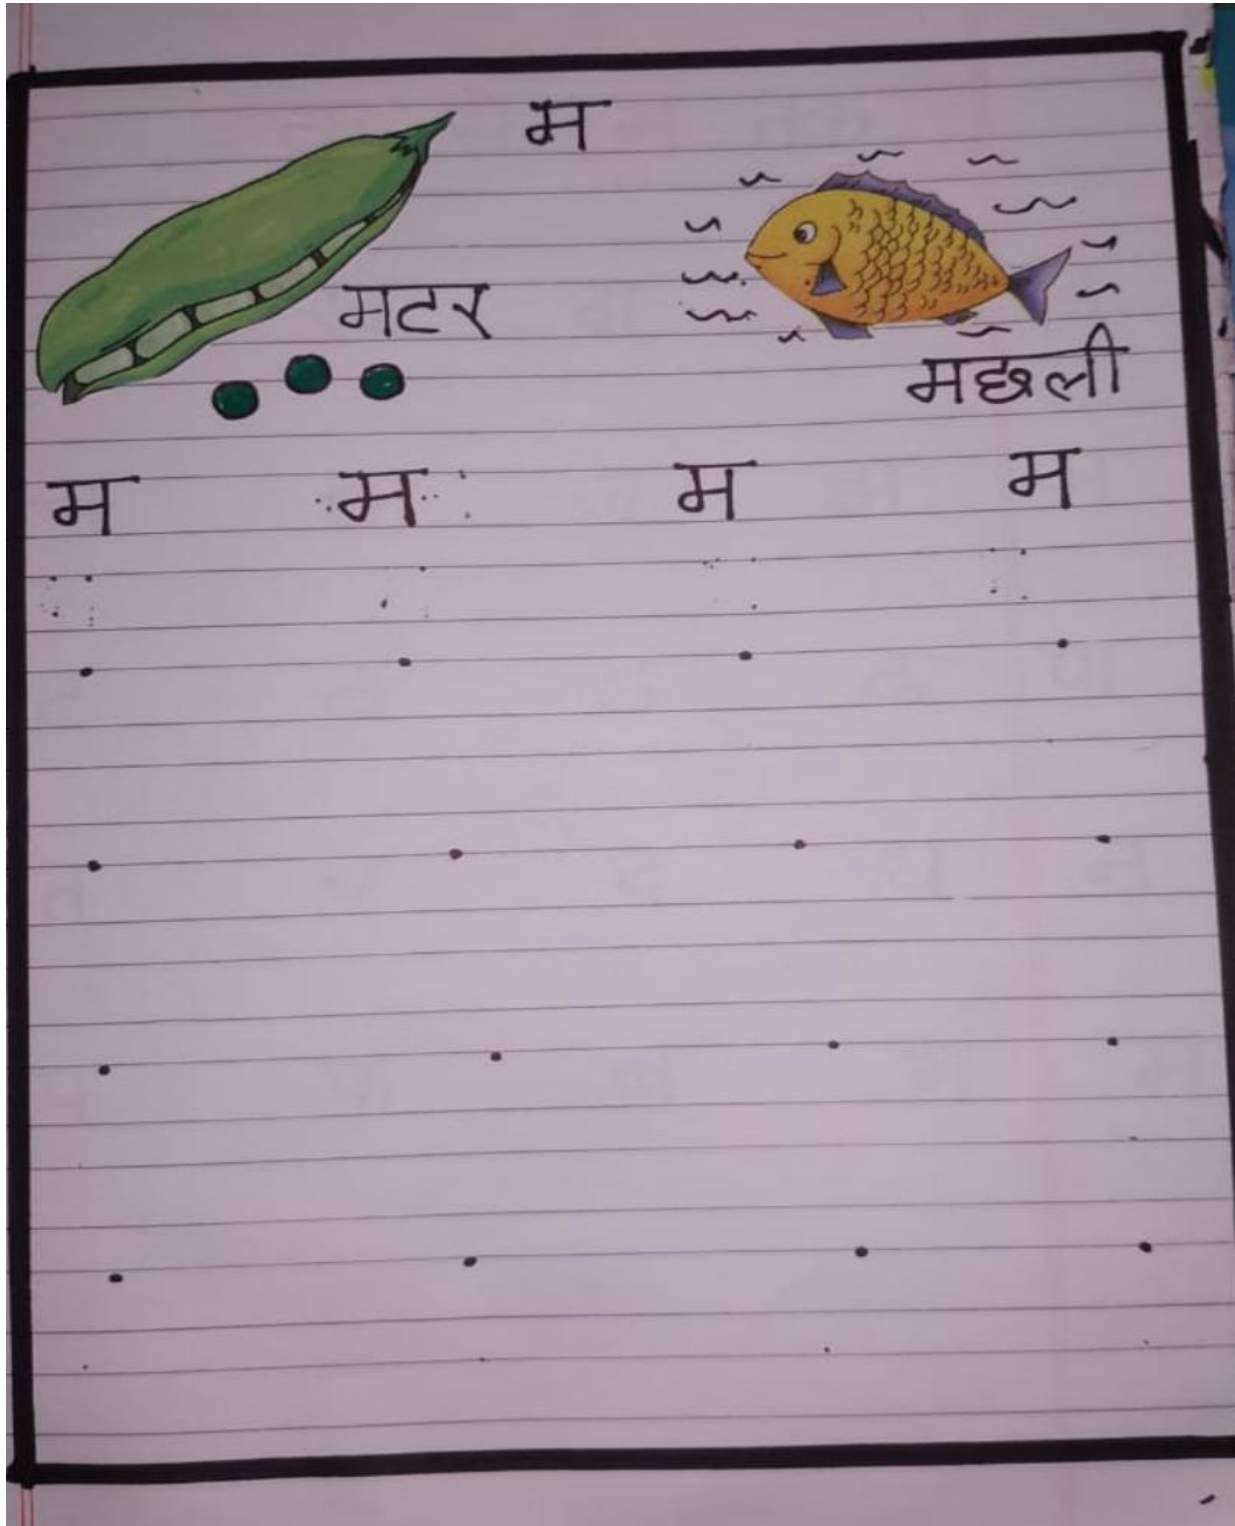 म
मटर
मछली
म म म म